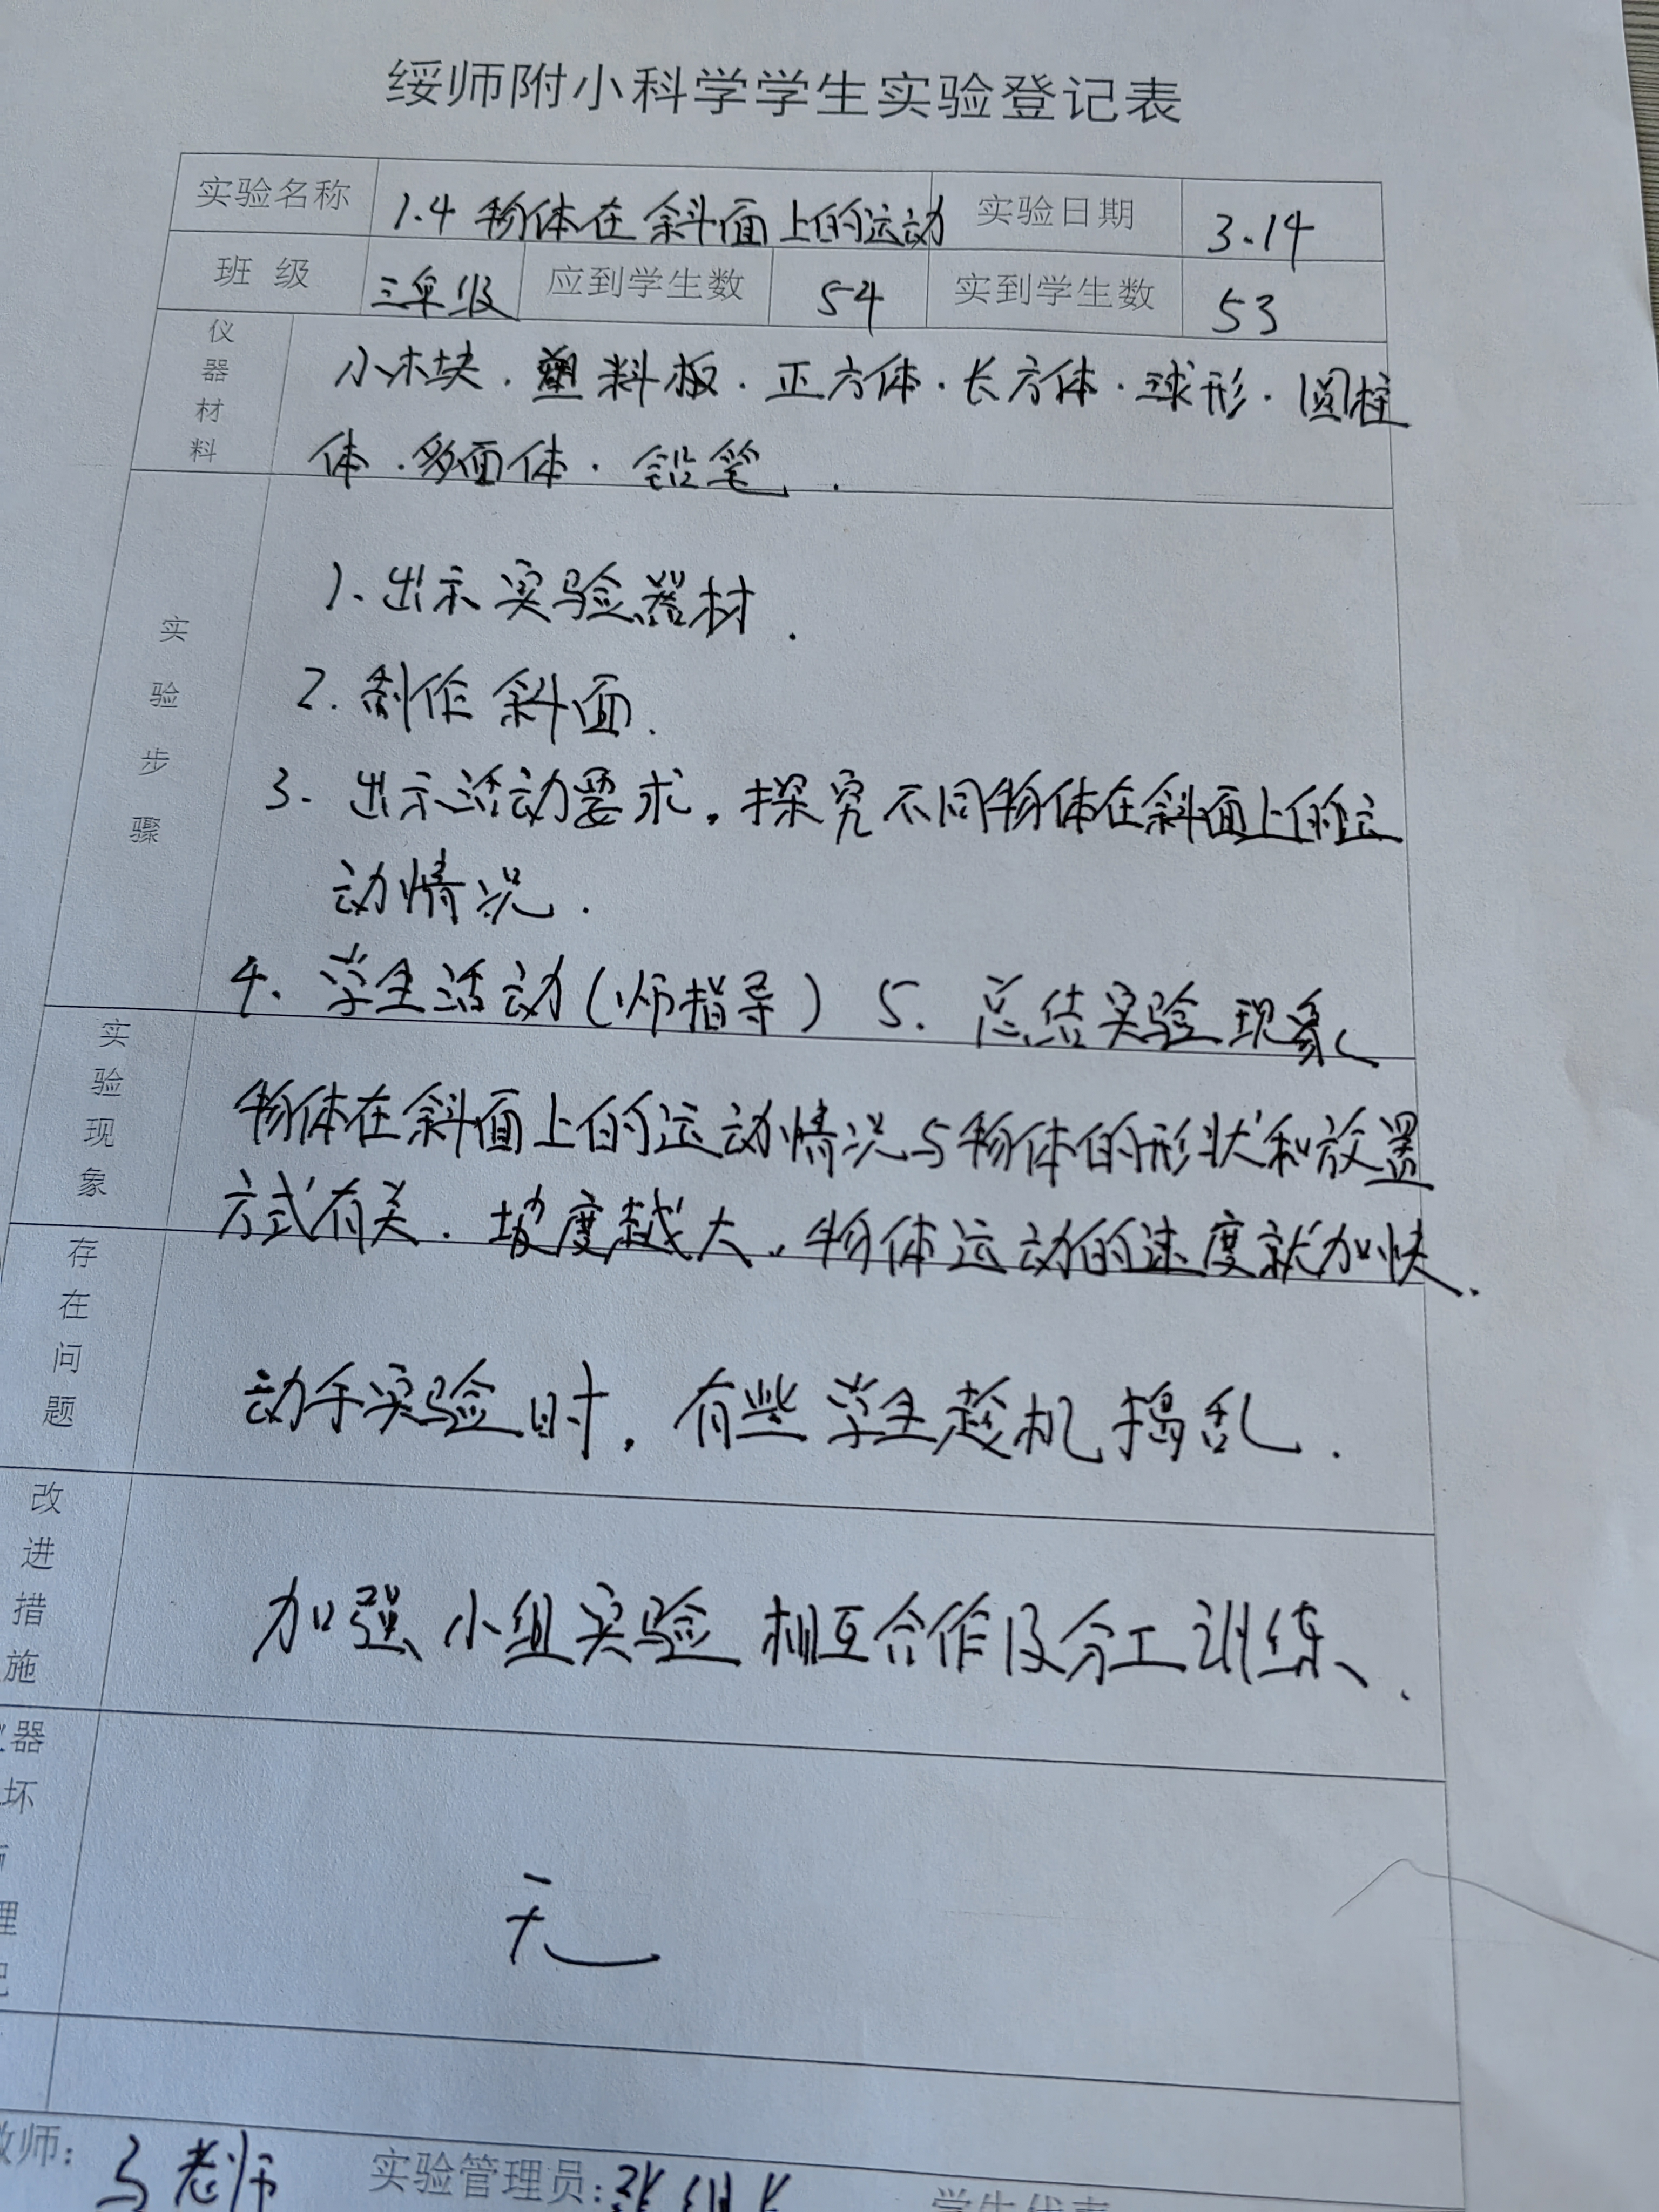 绥师附小科学学生实验登记表
实验名称 1.4 物体在斜面上的运动 实验日期 3.14
班 级 三年级 应到学生数 54 实到学生数 53
仪器材料 小木块.塑料板.正方体.长方体.球形.圆柱
体.多面体.铅笔.
实验步骤
1.出示实验器材.
2.制作斜面.
3.出示活动要求,探究不同物体在斜面上的运
动情况.
4.学生活动(师指导) 5.总结实验现象
实验现象
物体在斜面上的运动情况与物体的形状和放置
方式有关.坡度越大,物体运动的速度就加快.
存在问题
动手实验时,有些学生趁机捣乱.
改进措施
加强小组实验相互合作及分工训练.
器
坏
理
无
师: 马老师 实验管理员:张 学生代表